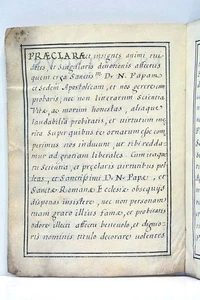 PRÆCLARA et insignes animi vir
tutes et singularis devotionis affectus
quem erga Sanctis.m D. N. Papam
et Sedem Apostolicam, et nos gerere com
probaris, nec non literarum Scientia
Vitæ ac morum honestas, aliaque
laudabilia probitatis, et virtutum me
rita Super quibus te ornatum esse com
perimus nos inducunt, ut tibi reddā
mur ad gratiam liberales. Cum itaque
tu Scientia, et præclaris virtutibus pol
leas, et Sanctissimi D. N. Papæ, et
Sanctæ Romanæ Ecclesiæ obsequijs
dispensus insistere, nec non personam
tuam grato illius famæ, et probitatis
odore illici affectu benevolo, et dignio
ris nominis titulo decorare volentes